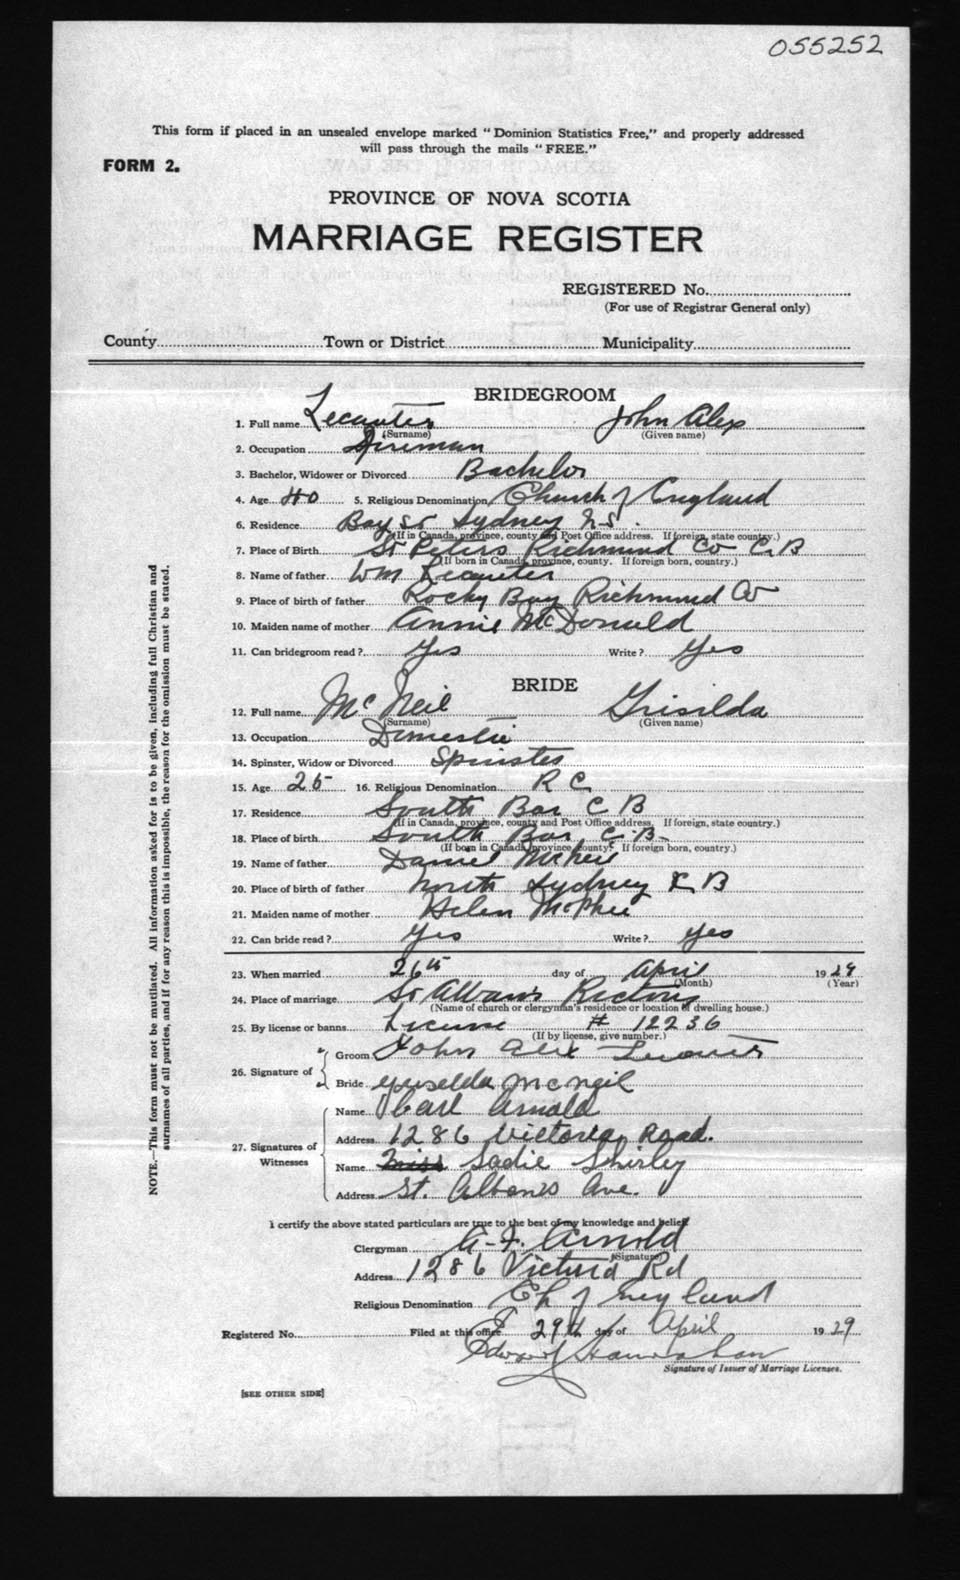 055252
This form if placed in an unsealed envelope marked "Dominion Statistics Free," and properly addressed
will pass through the mails "FREE."
FORM 2.
PROVINCE OF NOVA SCOTIA
MARRIAGE REGISTER
REGISTERED No.
(For use of Registrar General only)
County Town or District Municipality
BRIDEGROOM
1. Full name Lecouter John Alex
(Surname) (Given name)
2. Occupation Fireman
3. Bachelor, Widower or Divorced Bachelor
4. Age 40 5. Religious Denomination Church of England
6. Residence Bay St Sydney N.S.
(If in Canada, province, county and Post Office address. If foreign, state country.)
7. Place of Birth St Peters Richmond Co C.B
(If born in Canada, province, county. If foreign born, country.)
8. Name of father Wm Lecouter
9. Place of birth of father Rocky Bay Richmond Co
10. Maiden name of mother Annie McDonald
11. Can bridegroom read? Yes Write? Yes
BRIDE
12. Full name McNeil Grisilda
(Surname) (Given name)
13. Occupation Domestic
14. Spinster, Widow or Divorced Spinster
15. Age 25 16. Religious Denomination R C
17. Residence South Bar C B
(If in Canada, province, county and Post Office address. If foreign, state country.)
18. Place of birth South Bar C.B.
(If born in Canada, province, county. If foreign born, country.)
19. Name of father Daniel McNeil
20. Place of birth of father North Sydney C B
21. Maiden name of mother Helen McPhee
22. Can bride read? Yes Write? Yes
23. When married 26th day of April 1929
(Month) (Year)
24. Place of marriage St Alban's Rectory
(Name of church or clergyman's residence or location of dwelling house.)
25. By license or banns License # 12236
(If by license, give number.)
26. Signature of Groom John Alex
Bride Griselda McNeil
27. Signatures of Witnesses Name Carl Arnold
Address 1286 Victoria Road.
Name Miss Sadie Shirley
Address St. Albans Ave.
I certify the above stated particulars are true to the best of my knowledge and belief.
Clergyman A. F. Arnold
(Signature)
Address 1286 Victoria Rd
Religious Denomination Ch of England
Registered No. Filed at this office 29th day of April 1929
Edward Hanrahan
Signature of Issuer of Marriage Licenses.
[SEE OTHER SIDE]
NOTE.—This form must not be mutilated. All information asked for is to be given, including full Christian and
surnames of all parties, and if for any reason this is impossible, the reason for the omission must be stated.